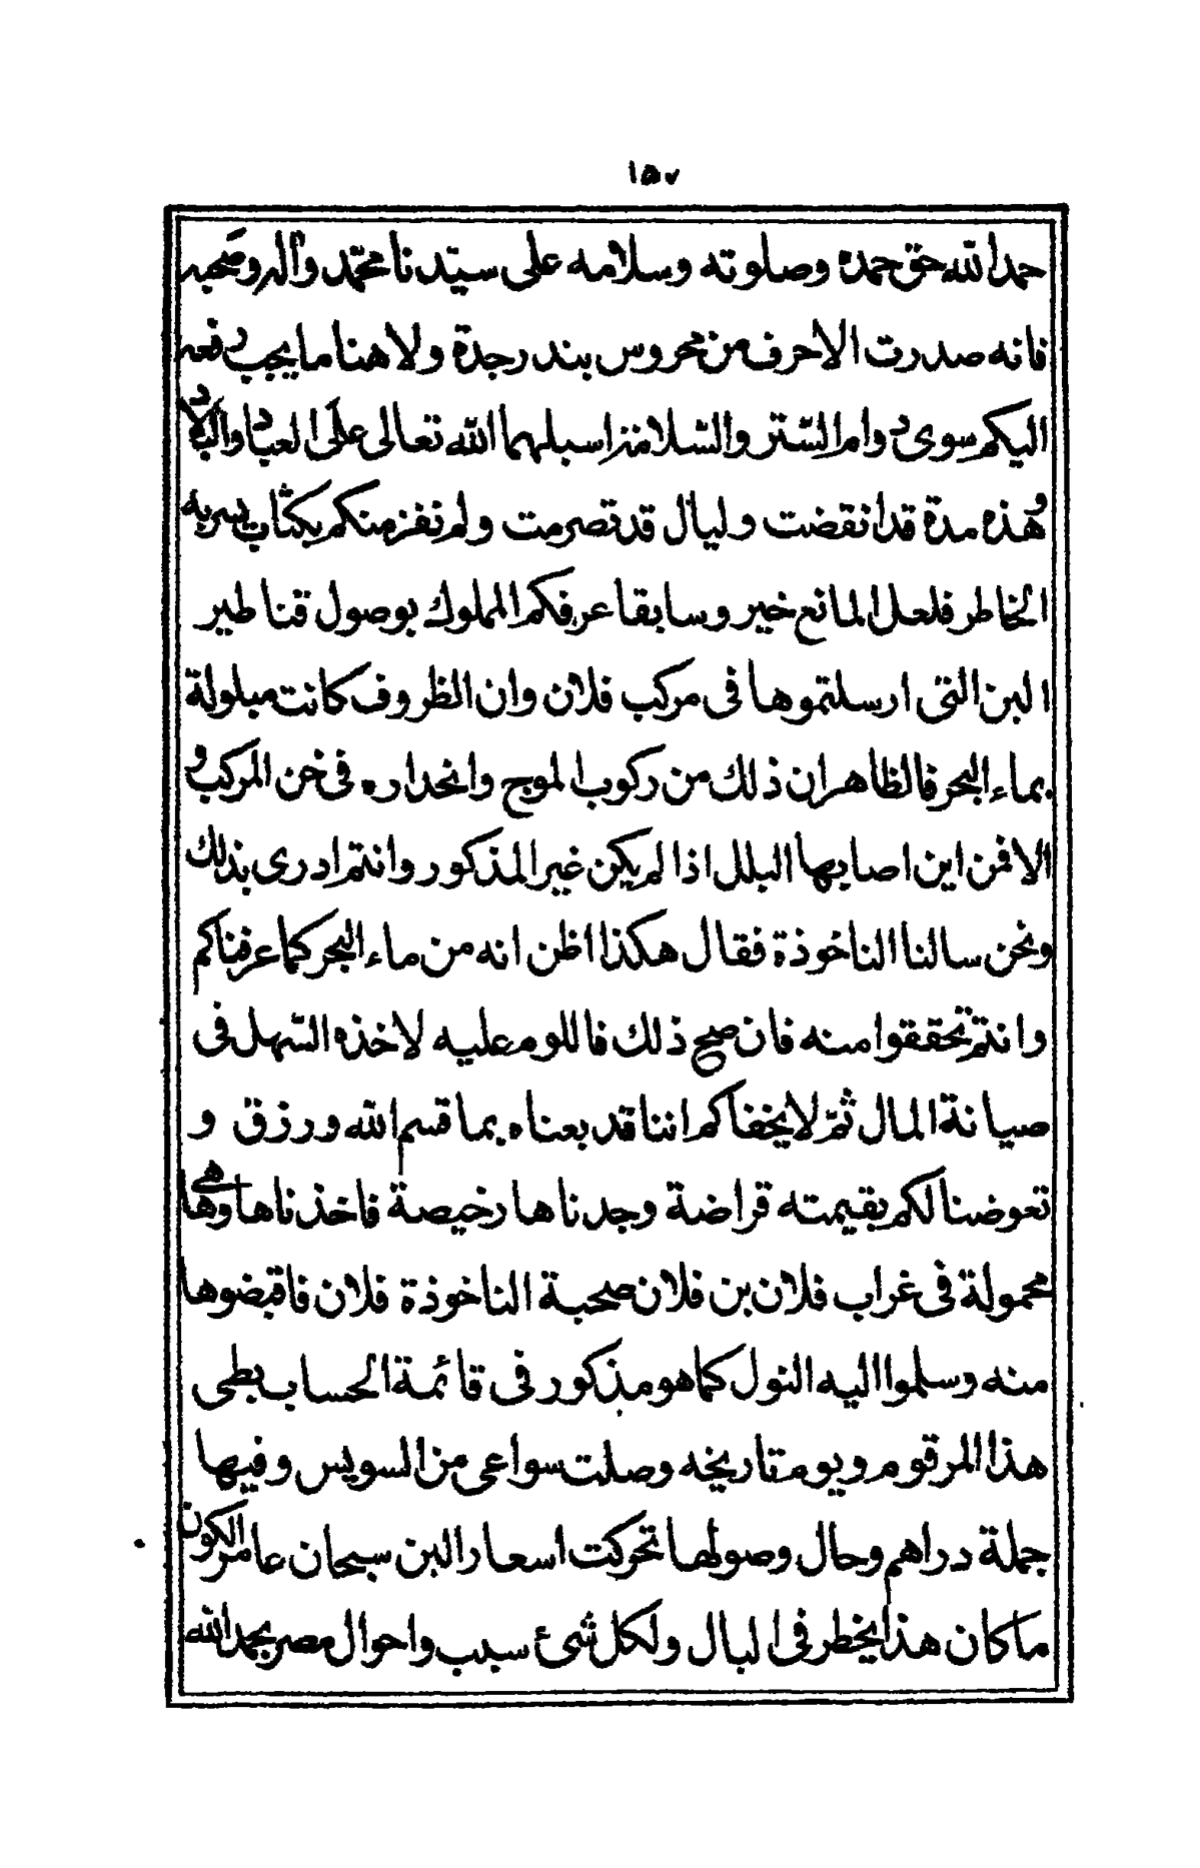 ١٥٧
حمدا لله حق حمده وصلوته وسلامه على سيّدنا محمّد وآله وصَحبه
فانه صدرت الاحرف من محروس بندر جدة ولا هنا ما يجب دفعه
اليكم سوى دوام السّتر والسّلامة اسبلهما الله تعالى علَى العباد والبلاد
وهذه مدة قد انقضت وليال قد تصرمت ولم نفز منكم بكتاب يسر به
الخاطر فلعل المانع خير وسابقا عرفكم المملوك بوصول قناطير
البن التى ارسلتموها فى مركب فلان وان الظروف كانت مبلولة
بماء البحر فالظاهر ان ذلك من ركوب الموج وانحداره فى خن المركب و
الا فمن اين اصابها البلل اذا لم يكن غير المذكور وانتم ادرى بذلك
ونحن سالنا الناخوذة فقال هكذا اظن انه من ماء البحر كما عرفناكم
وانتم تحققوا منه فان صح ذلك فاللوم عليه لاخذه السّهل فى
صيانة المال ثمّ لا يخفاكم اننا قد بعناه بما قسم الله ورزق و
تعوضنا لكم بقيمته قراضة وجدناها رخيصة فاخذناها وها هى
محمولة فى غراب فلان بن فلان صحبة الناخوذة فلان فاقبضوها
منه وسلموا اليه النول كما هو مذكور فى قائمة الحساب بطى
هذا المرقوم ويوم تاريخه وصلت سواعى من السويس وفيها
جملة دراهم وحال وصولها تحركت اسعار البن سبحان عامر الكون
ما كان هذا يخطر فى البال ولكل شىء سبب واحوال مصر بحمد الله